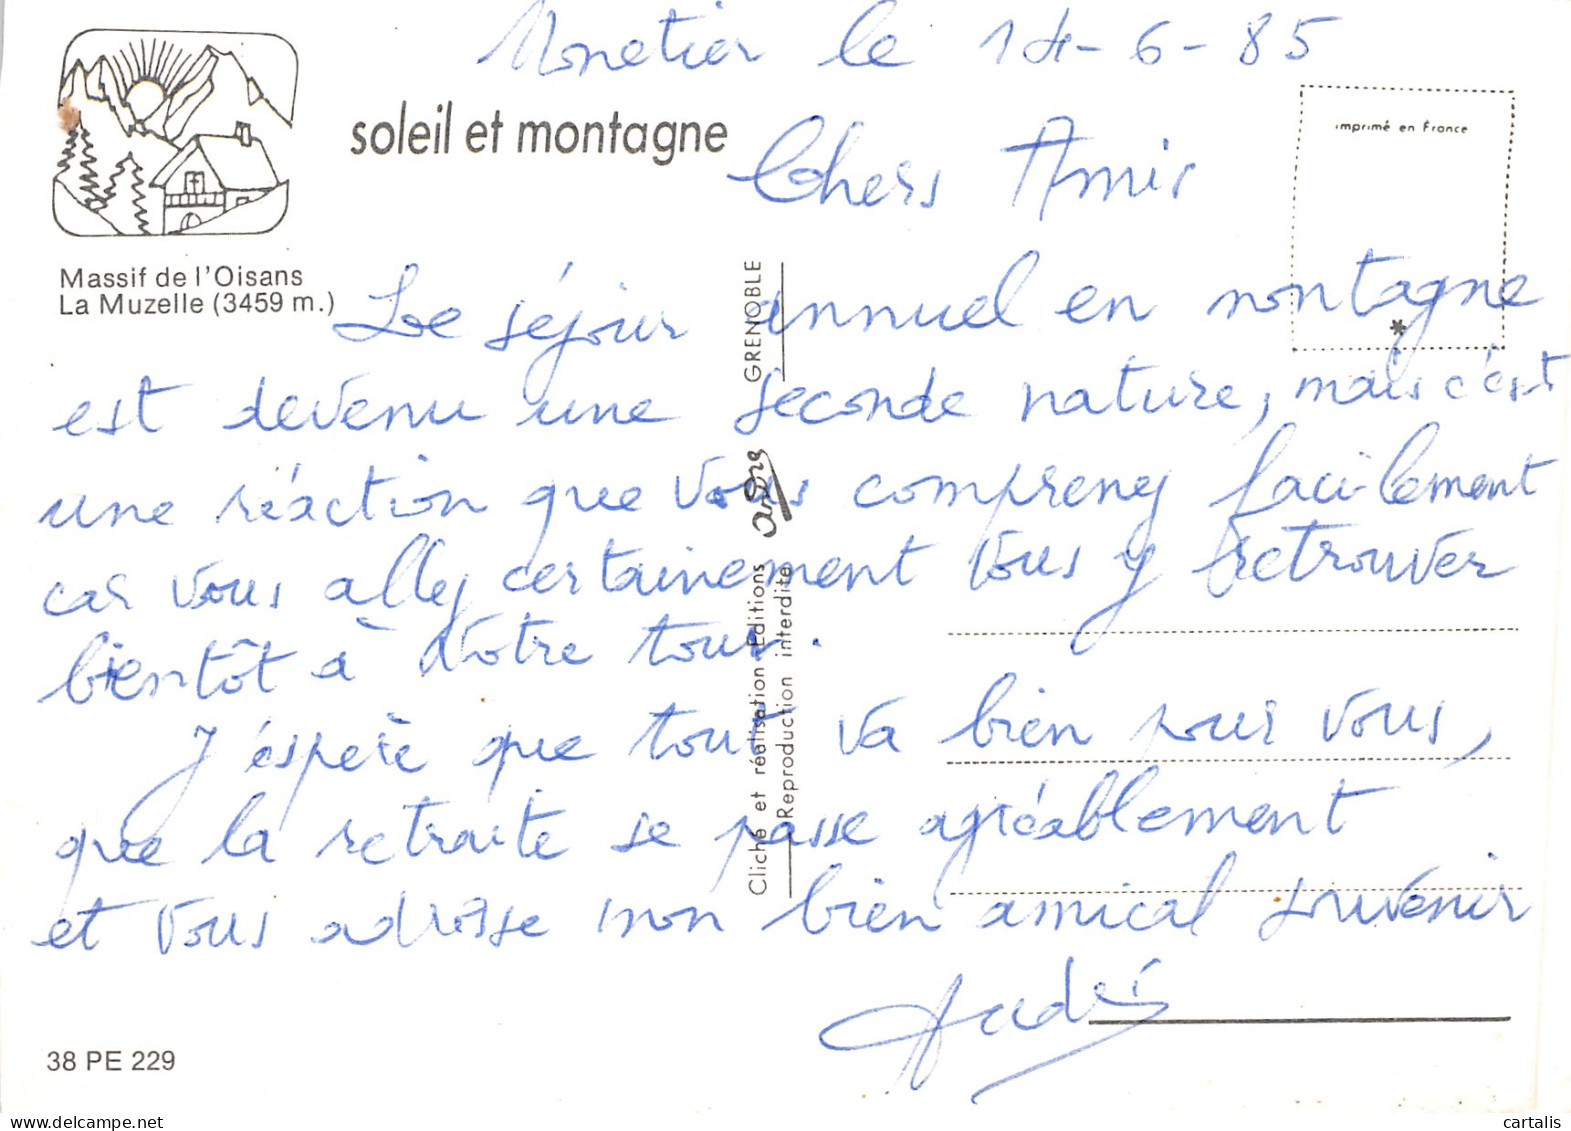 Monetier le 14-6-85
soleil et montagne
imprimé en France
Chers Amis
Massif de l'Oisans
La Muzelle (3459 m.)
Le séjour annuel en montagne
est devenu une seconde nature, mais c'est
une réaction que vous comprenez facilement
car vous allez certainement vous y retrouver
bientôt à votre tour.
J'espère que tout va bien pour vous,
que la retraite se passe agréablement
et vous adresse mon bien amical souvenir
André
Cliché et réalisation Editions andre GRENOBLE
Reproduction interdite
*
38 PE 229
www.delcampe.net
cartalis